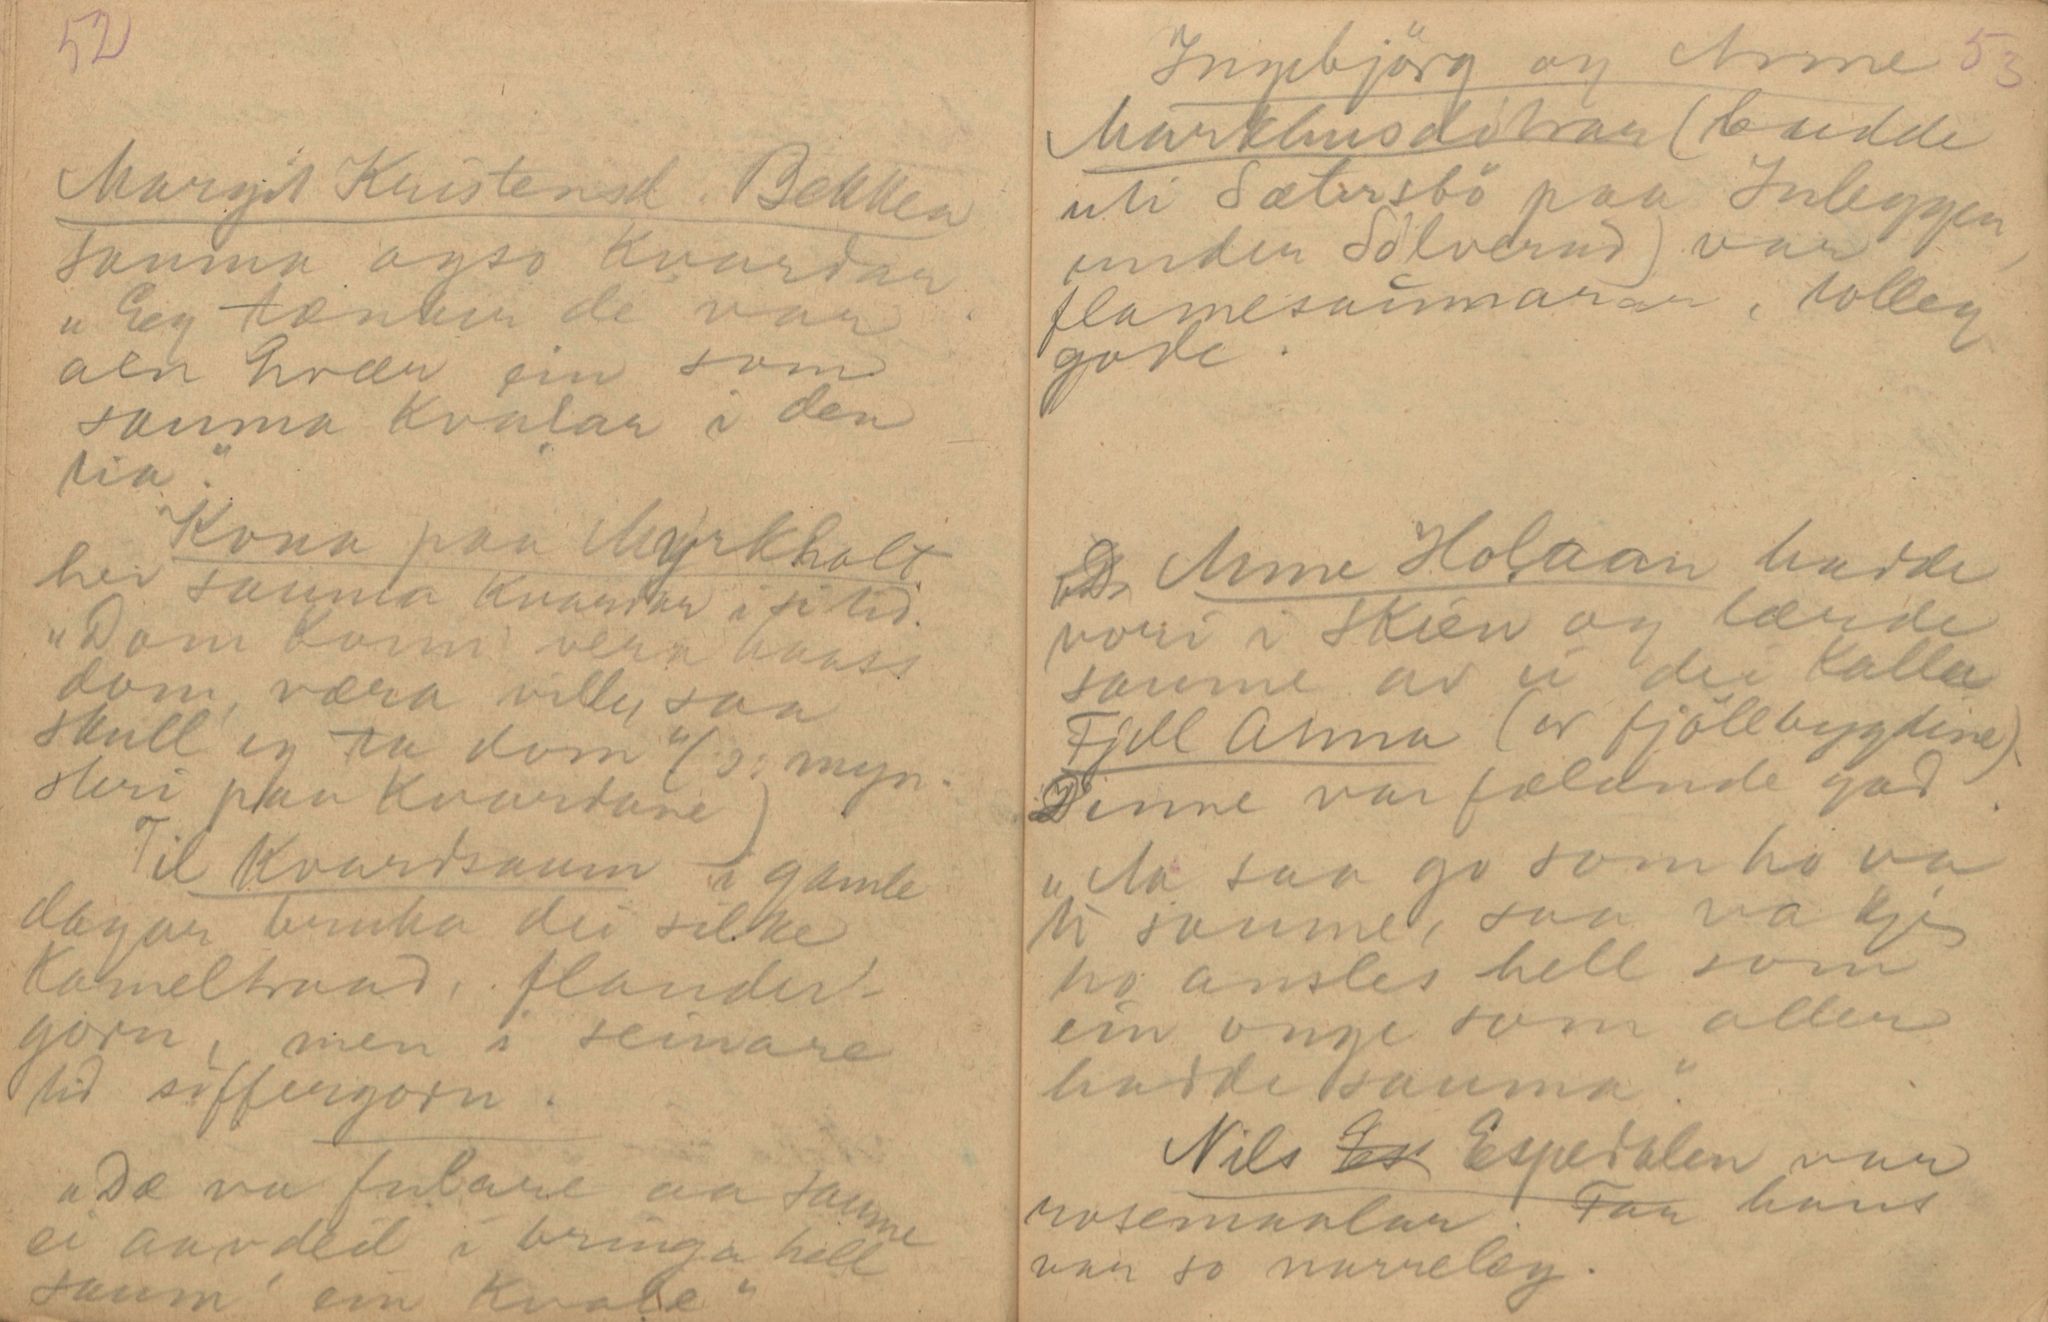 52
Margit Kristensd. Bekken
sauma ogso Kvardar.
"Eeg tænker de var
aen hvær ein som
sauma Kvalar i den
tia."
Kona paa Myrkholt
hei sauma Kvardar i si tid.
"Dom Konn vera haass
dom, væra ville, saa
skull eg ta dom" (ɔ: myn-
steri paa Kvardane)
Til Kvardsaum i gamle
dagar bruka dei silke
Kameltraad, flander-
gorn, men i seinare
tid söffergorn.
"Dæ va fulare aa saume
ei aavdeil i bringa hell
saum' ein Kvale"
53
Ingebjörg og Anne
Markhusdötrar (budde
uti Sætersbö paa Inleggen,
under Sölverud) var
flamesaumarar, tolleg
gode.
Anne Holaan hadde
vori i Skien og lærde
saume av ei dei Kalla
Fjell Anna (av fjöllbygdine).
Denne var fælande god.
"Aa saa go som ho va
ti saume, saa va kje
ho ansles hell som
ein onge som aller
hadde sauma."
Nils Es Espedalen var
rosemaalar. Faa hans
var so narreleg.